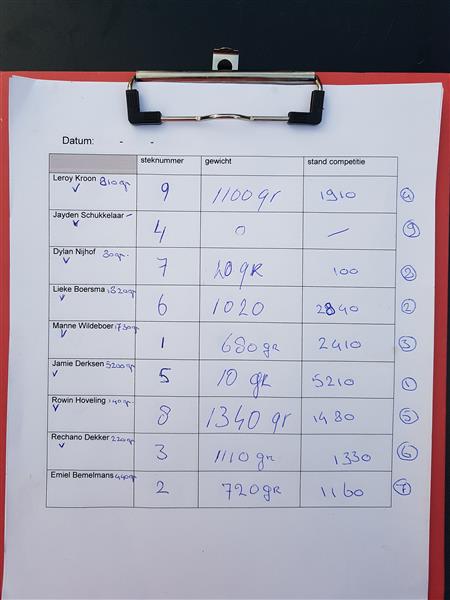 Datum: - -
steknummer gewicht stand competitie
Leroy Kroon 810gr 9 1100 gr 1910 4
Jayden Schukkelaar – 4 0 – 9
Dylan Nijhof 80gr. 7 20 gR 100 8
Lieke Boersma 1820gr 6 1020 2840 2
Manne Wildeboer 1730gr 1 680 gr 2410 3
Jamie Derksen 5200gr 5 10 gR 5210 1
Rowin Hoveling 140gr 8 1340 gr 1480 5
Rechano Dekker 220gr 3 1110 gr 1330 6
Emiel Bemelmans 440gr 2 720gR 1160 7